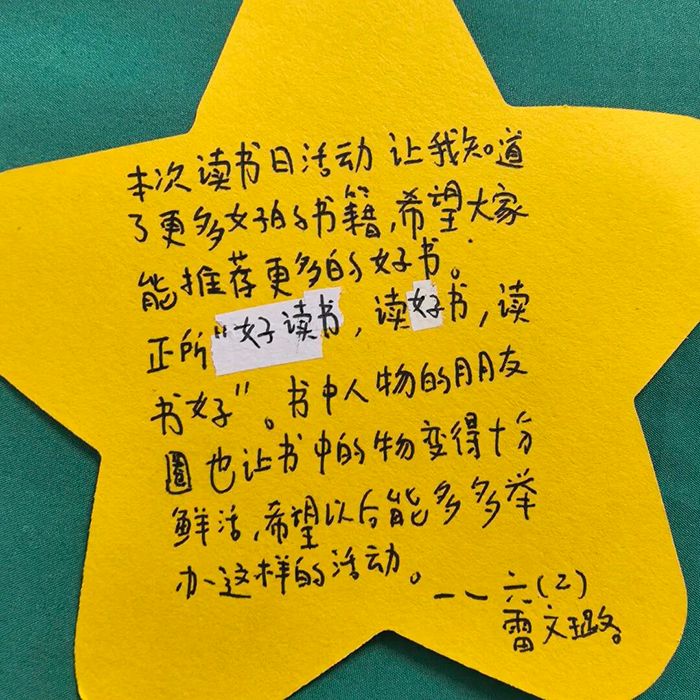 本次读书日活动让我知道
了更多好的书籍,希望大家
能推荐更多的好书。
正所“好读书,读好书,读
书好”。书中人物的朋友
圈也让书中的物变得十分
鲜活,希望以后能多多举
办这样的活动。
——六(2)
雷文璐。